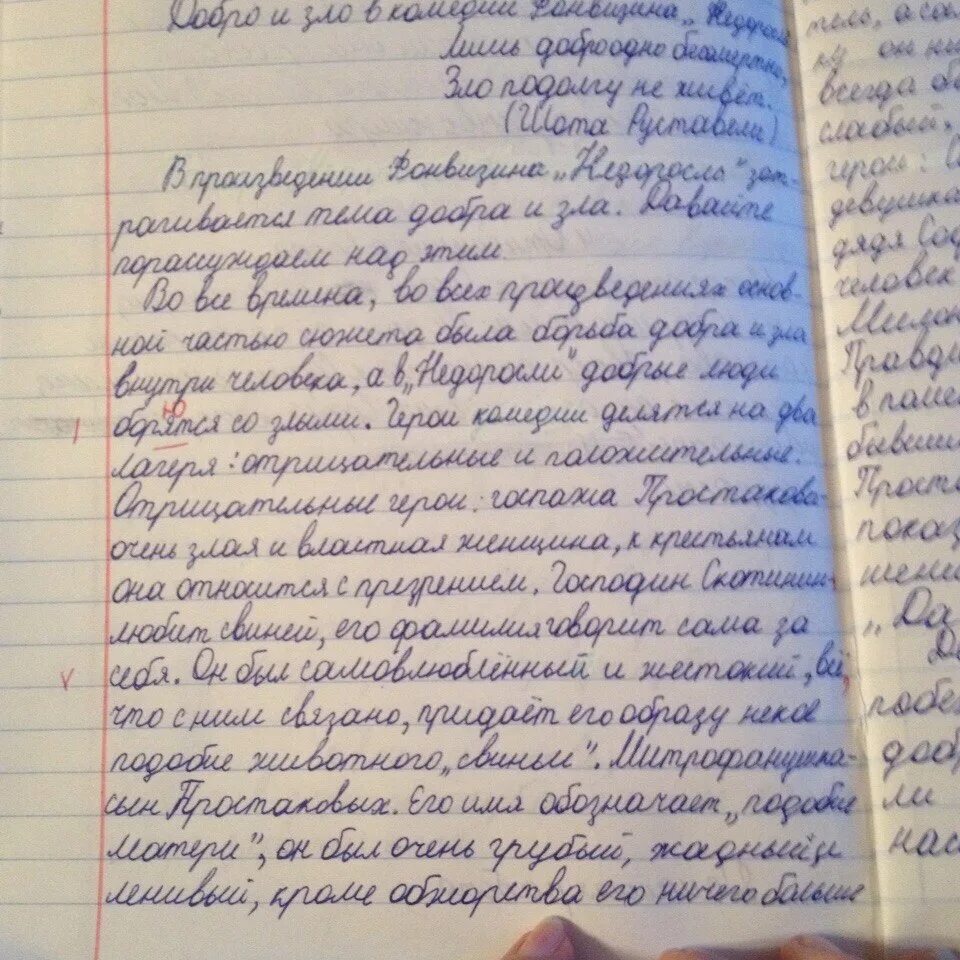 Добро и зло в комедии Фонвизина „Недоросль
Лишь добро одно бессмертно,
Зло подолгу не живёт.
(Шота Руставели)
В произведении Фонвизина „Недоросль" зат-
рагивается тема добра и зла. Давайте
порассуждаем над этим.
Во все времена, во всех произведениях основ-
ной частью сюжета была борьба добра и зла
внутри человека, а в „Недоросли" добрые люди
ю
борятся со злыми. Герои комедии делятся на два
лагеря: отрицательные и положительные.
Отрицательные герои: госпажа Простакова-
очень злая и властная женщина, к крестьянам
она относится с презрением. Господин Скотинин-
любит свиней, его фамилия говорит сама за
себя. Он был самовлюблённый и жестокий, всё,
что с ним связано, придаёт его образу некое
подобие животного „свиньи". Митрофанушка-
сын Простаковых. Его имя обозначает „подобие
матери", он был очень грубый, жадный и
ленивый, кроме обжорства его ничего больше
тель, а
он
всегда
слабый.
герои:
девушка
дядя
человек
Милон
Правд
в
бывши
Прост
показ
шени
„Да
побе
доб
ли
нас